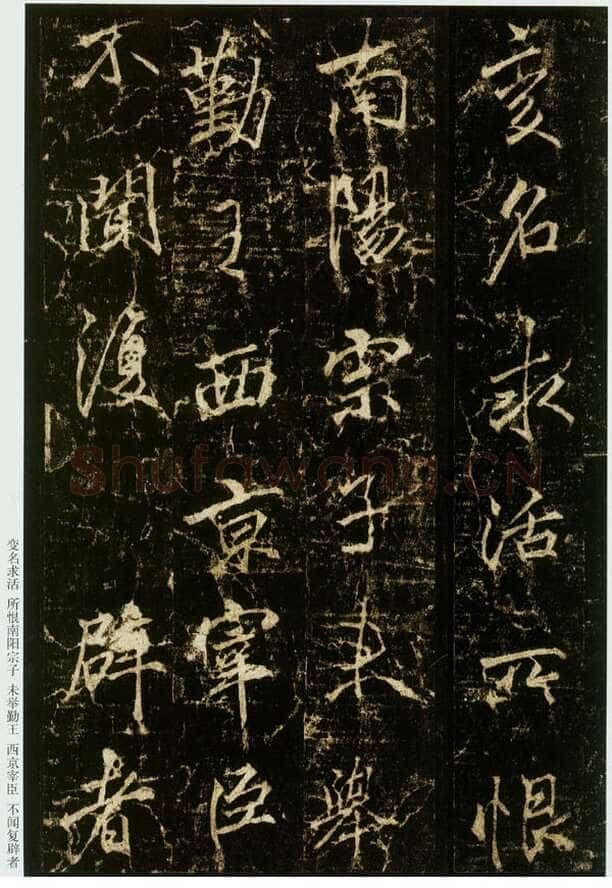 變名求活所恨
南陽宗子未舉
勤王西京宰臣
不聞復辟者
变名求活 所恨南阳宗子 未举勤王 西京宰臣 不闻复辟者
Shufawang.CN